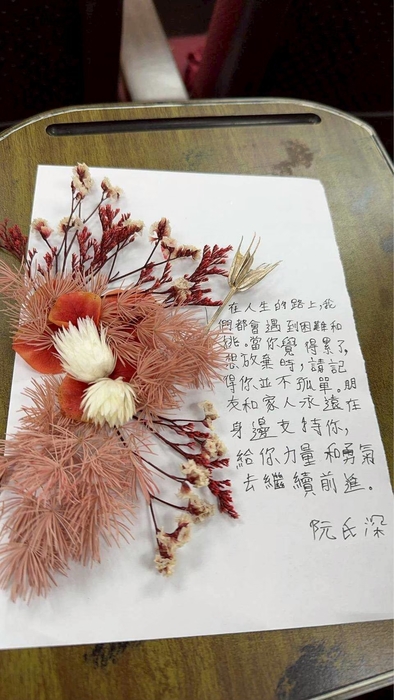 在人生的路上,我
們都會遇到困難和
挑。當你覺得累了,
想放棄時,請記
得你並不孤單。朋
友和家人永遠在
身邊支持你,
給你力量和勇氣
去繼續前進。
阮氏深